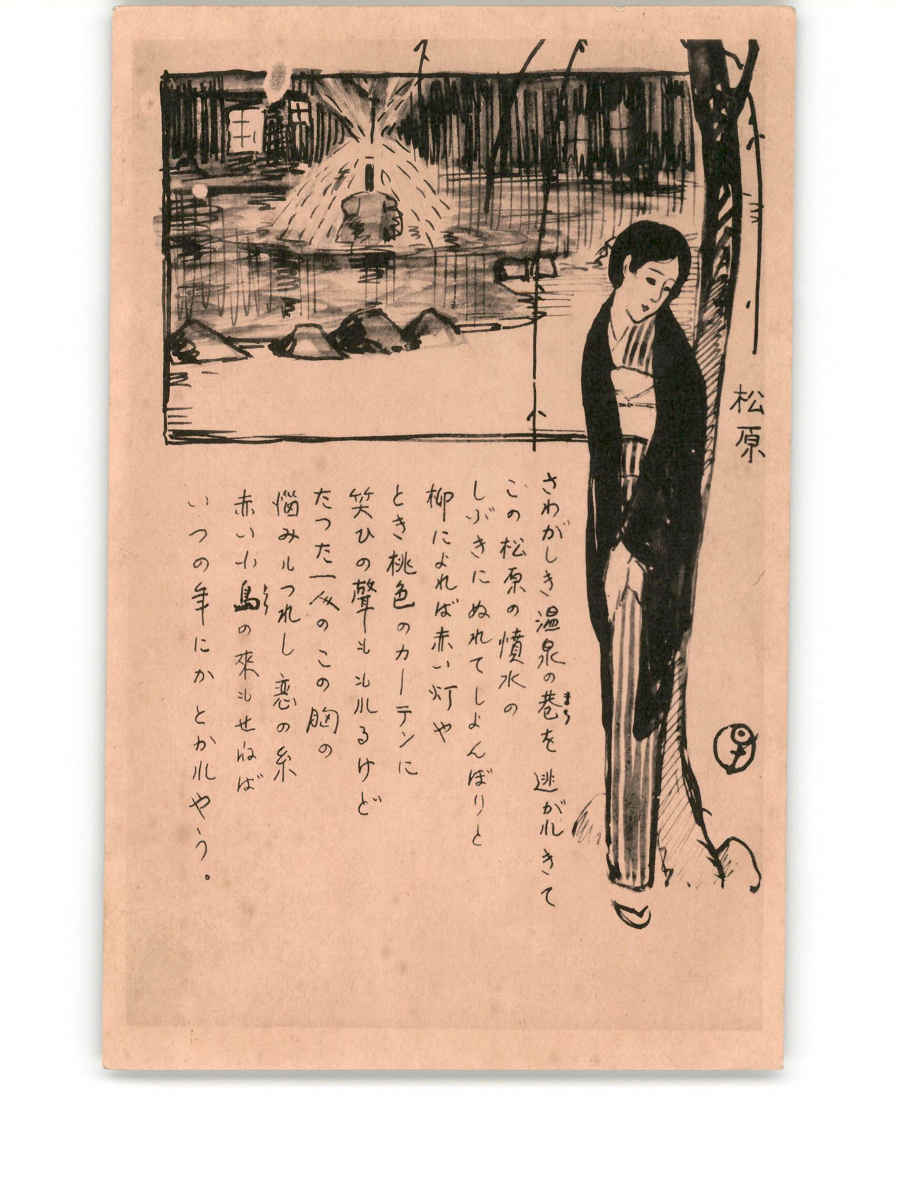 松原
さわがしき温泉の巷を逃がれきて
まち
この松原の憤水の
しぶきにぬれてしよんぼりと
柳によれば赤い灯や
とき桃色のカーテンに
笑ひの聲ももれるけど
たつた一人のこの胸の
悩みもつれし恋の糸
赤い小鳥の來もせねば
いつの年にかとかれやう。